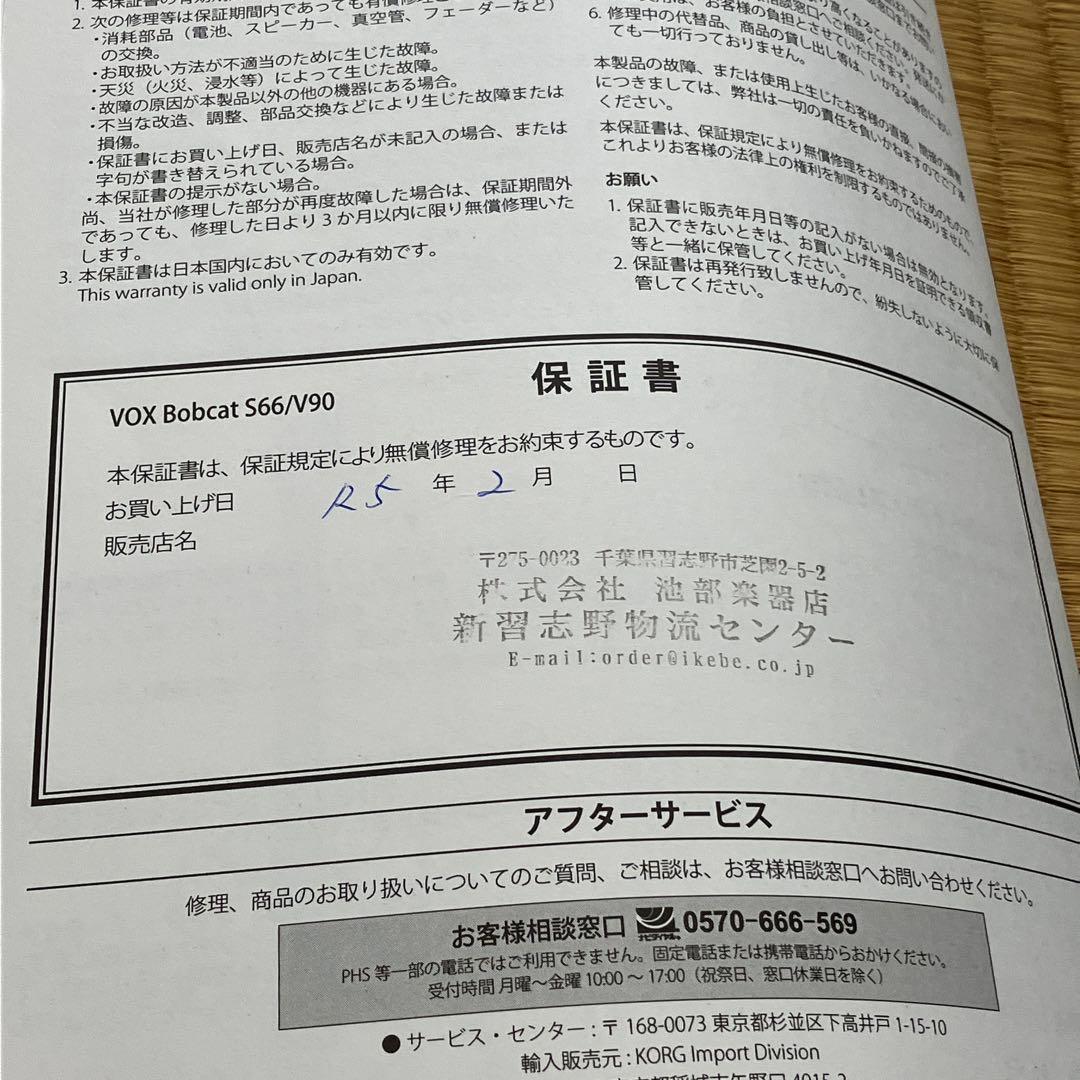 1. 本保証書の有効期
2. 次の修理等は保証期間内であっても有償修理と
・消耗部品（電池、スピーカー、真空管、フェーダーなど）
の交換。
・お取扱い方法が不適当のために生じた故障。
・天災（火災、浸水等）によって生じた故障。
・故障の原因が本製品以外の他の機器にある場合。
・不当な改造、調整、部品交換などにより生じた故障または
損傷。
・保証書にお買い上げ日、販売店名が未記入の場合、または
字句が書き替えられている場合。
・本保証書の提示がない場合。
尚、当社が修理した部分が再度故障した場合は、保証期間外
であっても、修理した日より3か月以内に限り無償修理いた
します。
3. 本保証書は日本国内においてのみ有効です。
This warranty is valid only in Japan.
は、お客様の負担とさせていただきます。
6. 修理中の代替品、商品の貸し出し等は、いかなる場合におい
ても一切行っておりません。
本製品の故障、または使用上生じたお客様の直接、間接の損害
につきましては、弊社は一切の責任を負いかねますのでご了承
ください。
本保証書は、保証規定により無償修理をお約束するためのもので、
これよりお客様の法律上の権利を制限するものではありません。
お願い
1. 保証書に販売年月日等の記入がない場合は無効となります。
記入できないときは、お買い上げ年月日を証明できる領収書
等と一緒に保管してください。
2. 保証書は再発行致しませんので、紛失しないように大切に保
管してください。
保証書
VOX Bobcat S66/V90
本保証書は、保証規定により無償修理をお約束するものです。
お買い上げ日 R5 年 2 月 日
販売店名
〒275-0023 千葉県習志野市芝園2-5-2
株式会社 池部楽器店
新習志野物流センター
E-mail:order@ikebe.co.jp
アフターサービス
修理、商品のお取り扱いについてのご質問、ご相談は、お客様相談窓口へお問い合わせください。
お客様相談窓口 0570-666-569
PHS 等一部の電話ではご利用できません。固定電話または携帯電話からおかけください。
受付時間 月曜〜金曜 10:00 〜 17:00（祝祭日、窓口休業日を除く）
● サービス・センター : 〒 168-0073 東京都杉並区下高井戸 1-15-10
輸入販売元 : KORG Import Division
東京都稲城市矢野口 4015-2